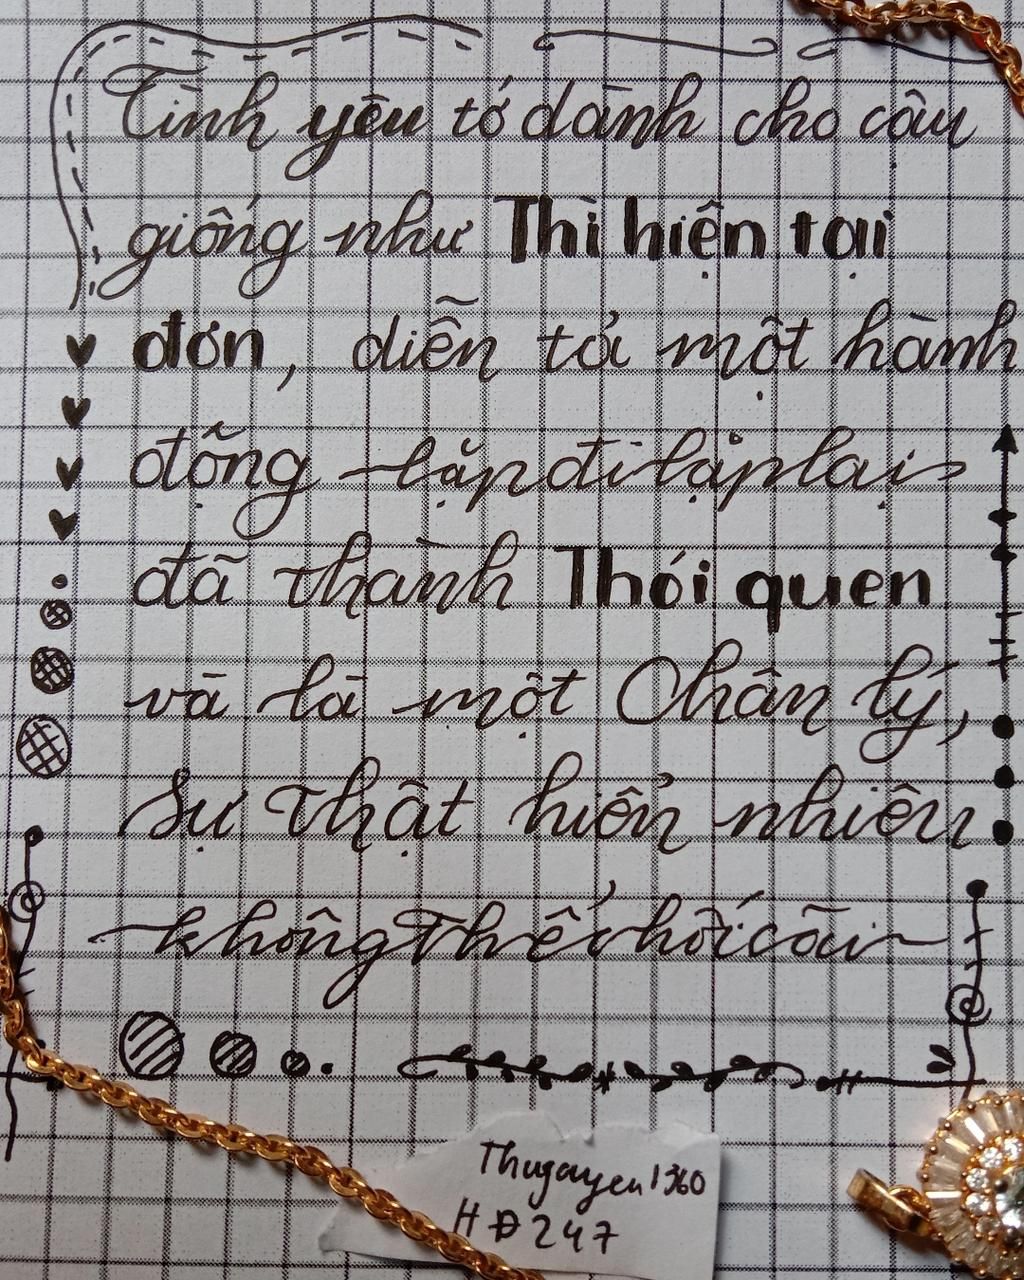 Tình yêu tớ dành cho cậu
giống như Thì hiện tại
đơn, diễn tả một hành
động lặp đi lặp lại
đã thành Thói quen
và là một Chân lý,
Sự thật hiển nhiên
không thể chối cãi
Thuyouyen1360
HĐ247